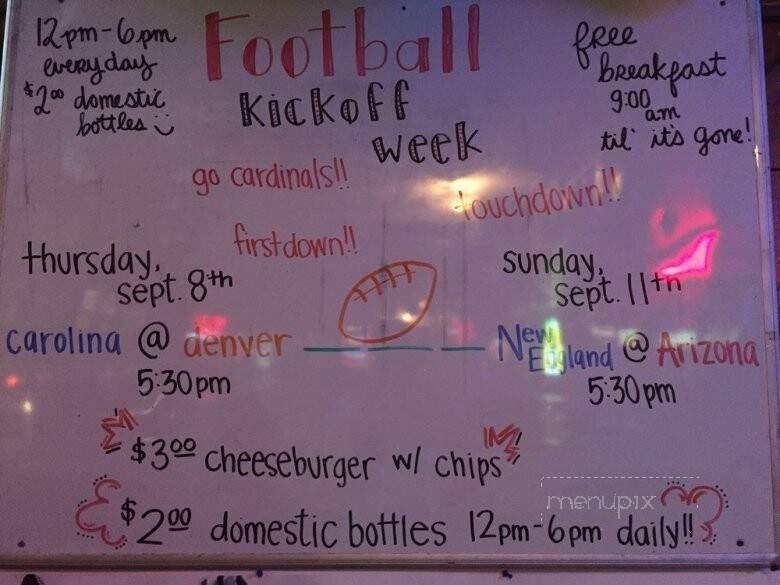 12pm-6pm
everyday
$2.00 domestic
bottles
Football
Kickoff
week
free
breakfast
9:00
am
til' it's gone!
go cardinals!!
touchdown!!
first down!!
thursday,
sept. 8th
carolina @ denver
5:30pm
sunday,
sept. 11th
New England @ Arizona
5:30pm
$3.00 cheeseburger w/ chips
menupix
$2.00 domestic bottles 12pm-6pm daily!!